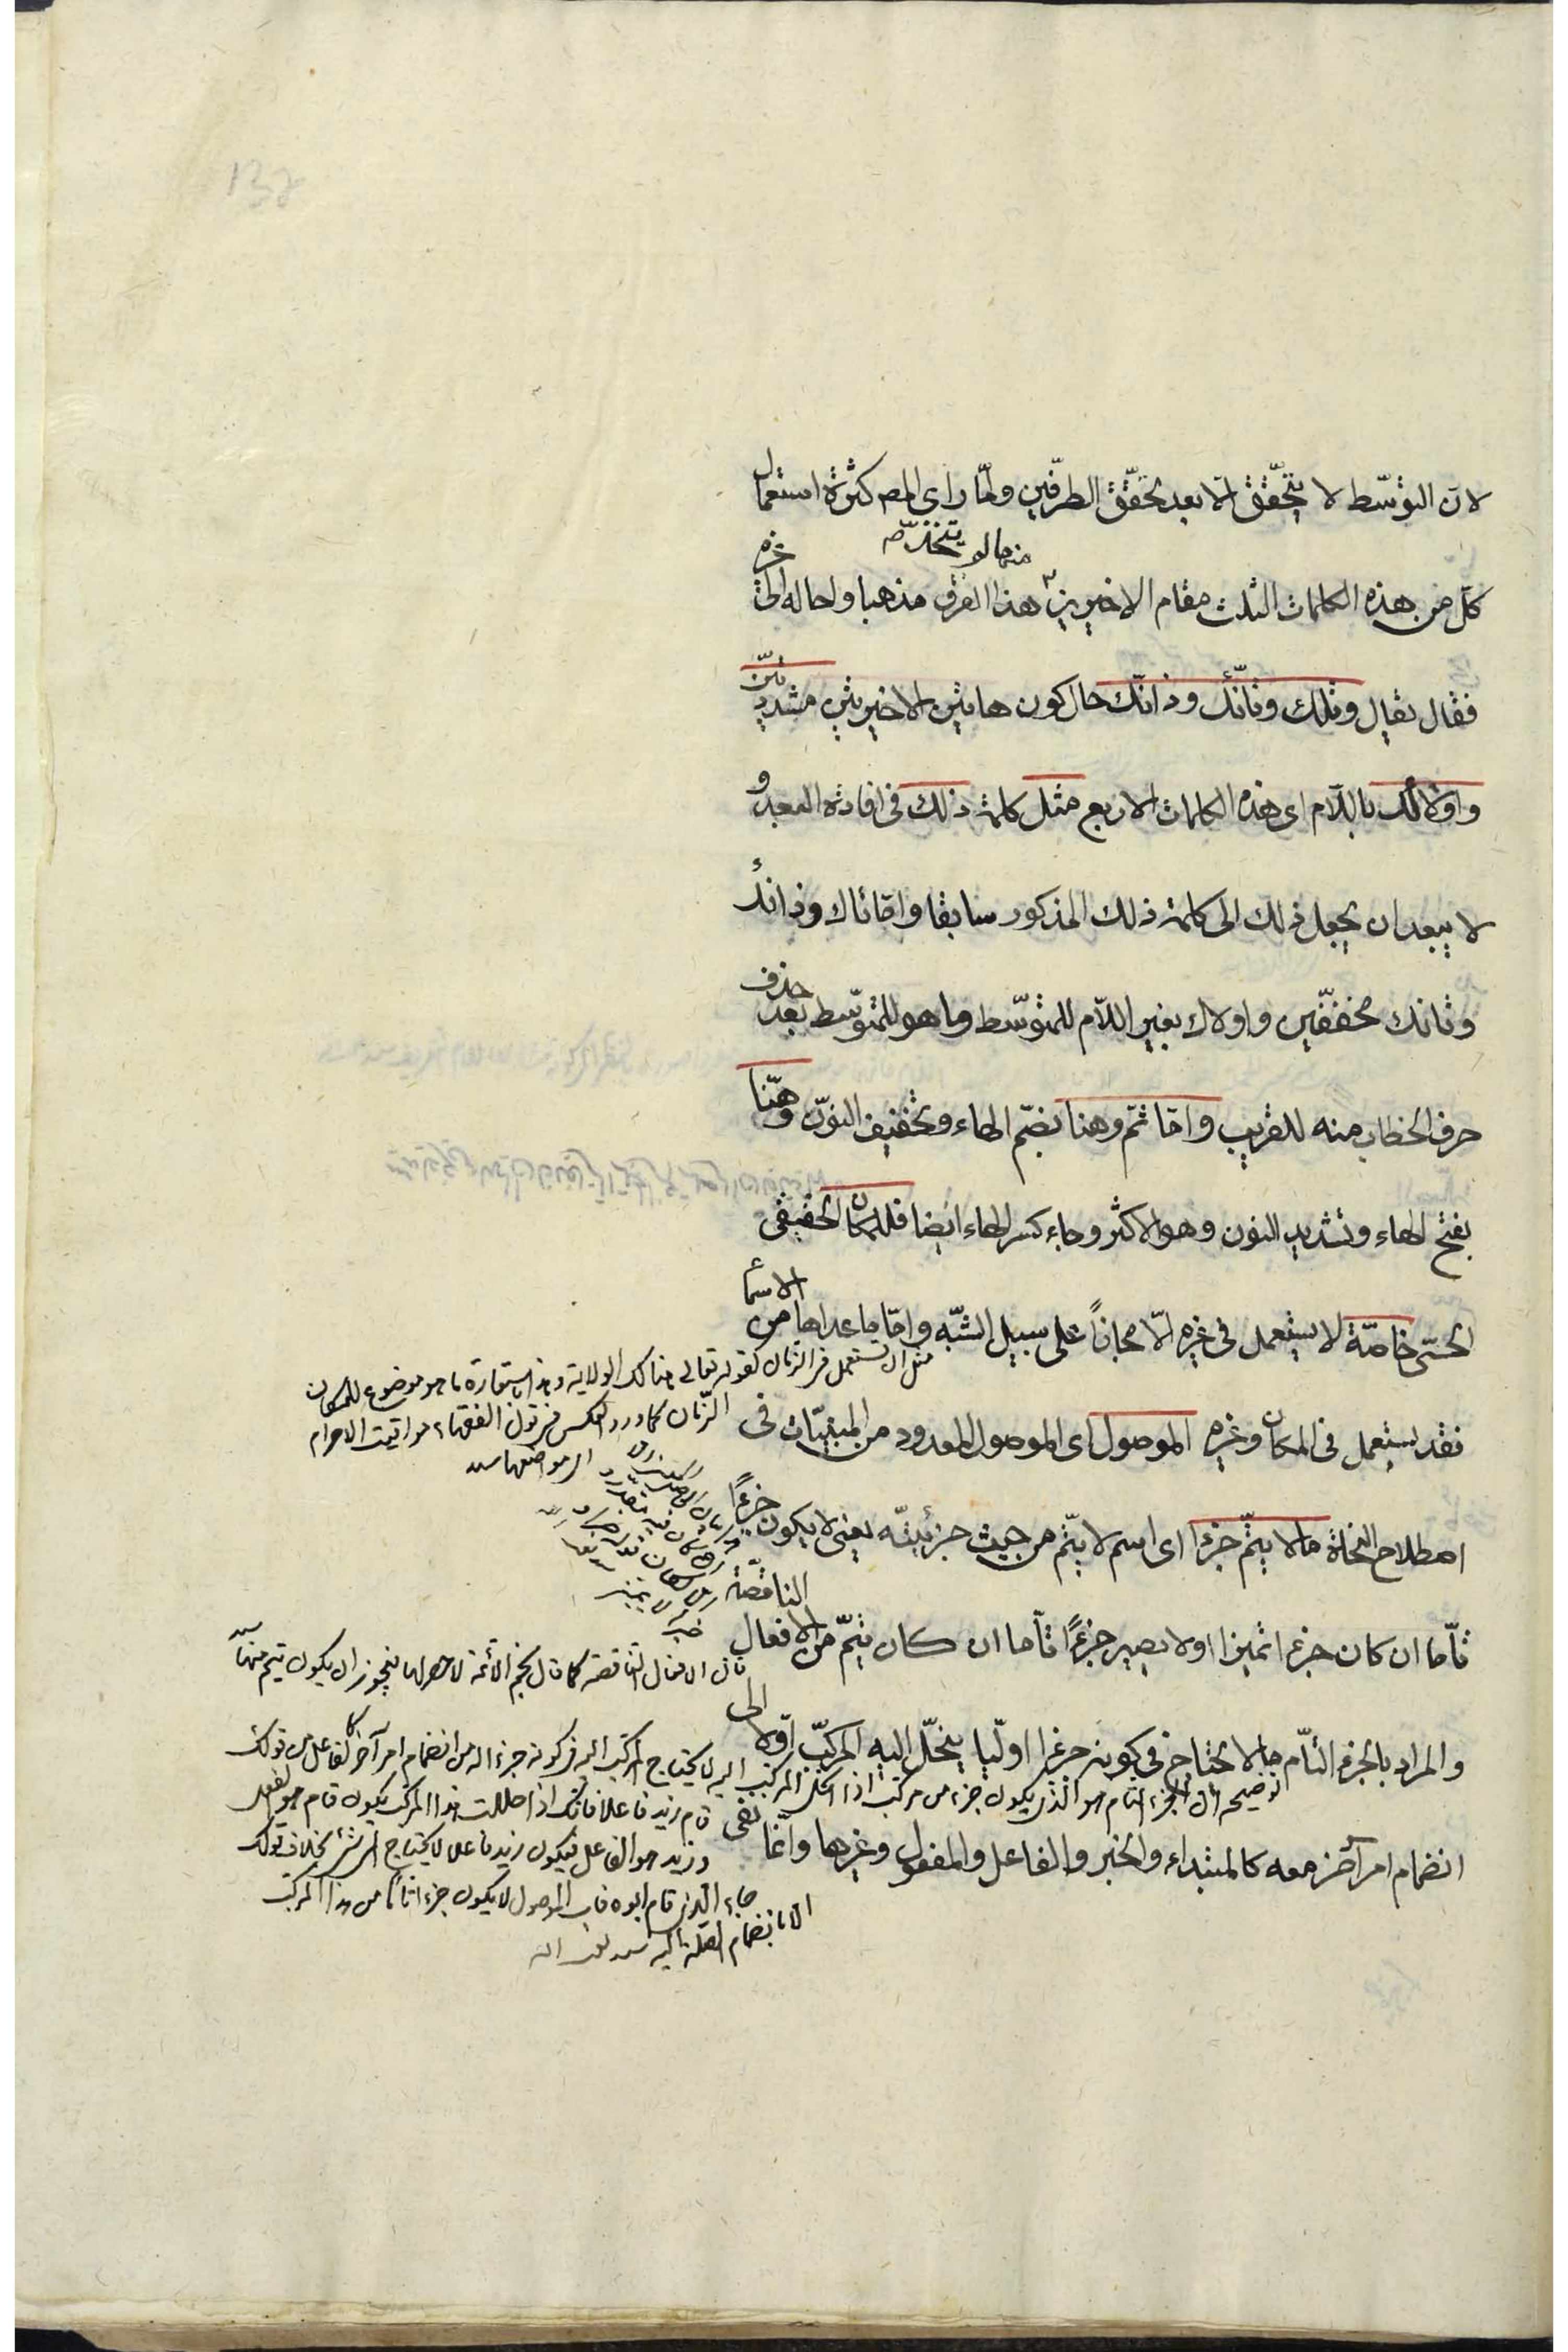 لان التوسّط لا يتحقّق الّا بعد تحقّق الطرفين ولمّا راى المص كثرة استعمال
كلّ من هذه الكلمات الثلث مقام الاخيرين منها لم يتخذ هذا الفرق مذهبا واحاله الى غيره
فقال يقال وتلك وتانّك وذانّك حال كون هاتين الاخيرتين مشدّدتين
واولالك باللّام اى هذه الكلمات الاربع مثل كلمة ذلك فى افادته البعد و
لا يبعد ان يجعل ذلك الى كلمة ذلك المذكور سابقا وامّا تاك وذانك
وتانك مخففّين واولاك بغير اللّام للمتوسّط وما هو للمتوسّط بعد حذف
حرف الخطاب منه للقريب وامّا ثمّ وهنا بضمّ الهاء وتخفيف النوّن وهنّا
بفتح الهاء وتشديد النون وهو الاكثر وجاء كسر الهاء ايضا فللمكان الحقيقى
الحسّى خاصّة لا يستعمل فى غيره الّا مجازاً على سبيل الشبّه وامّا ما عداها من الاسما
مثل ان تستعمل فى الزمان كقوله تعالى هنالك الولاية وهذا استعارة ما هو موضوع للمكان
الزّمان كما ورد العكس فى قول الفقهاء مواقيت الاحرام
اى مواضعها
فقد يستعمل فى المكان وغيره الموصول اى الموصول المعدود من المبنيّات فى
اصطلاح النحاة ما لا يتمّ جزءا اى اسم لا يتّم من حيث جزئيتّه يعنى لا يكون جزءًا
تامّا ان كان جزءا تميزا او لا يصير جزءًا تامّا ان كان يتمّ من الافعال الناقصّة
فان الافعال الناقصة كما قال نجم الائمة لا حصر لها فيجوز ان يكون يتم منها
والمراد بالجزء التّام ما لا يحتاج فى كونه جزءا اوليّا ينحّل اليه المركبّ اوّلا الى
توضيحه ان الجزء التام هو الذى يكون جزء من مركب اذا انحل المركب اليه لا يحتاج المركب اليه فى كونه جزءا له من انضمام امر آخر كالفاعل من قولك
قام زيد فاعلا فانك اذا حللت هذا المركب يكون قام هو الفعل
وزيد هو الفاعل فيكون زيد فاعلا لا يحتاج الى شئ بخلاف قولك
جاء الذى قام ابوه فان الموصول لا يكون جزءا تاما من هذا المركب
الا بانضمام الصلة اليه
انضمام امر آخر معه كالمبتداء والخبر والفاعل والمفعول وغيرها وانّما نفى